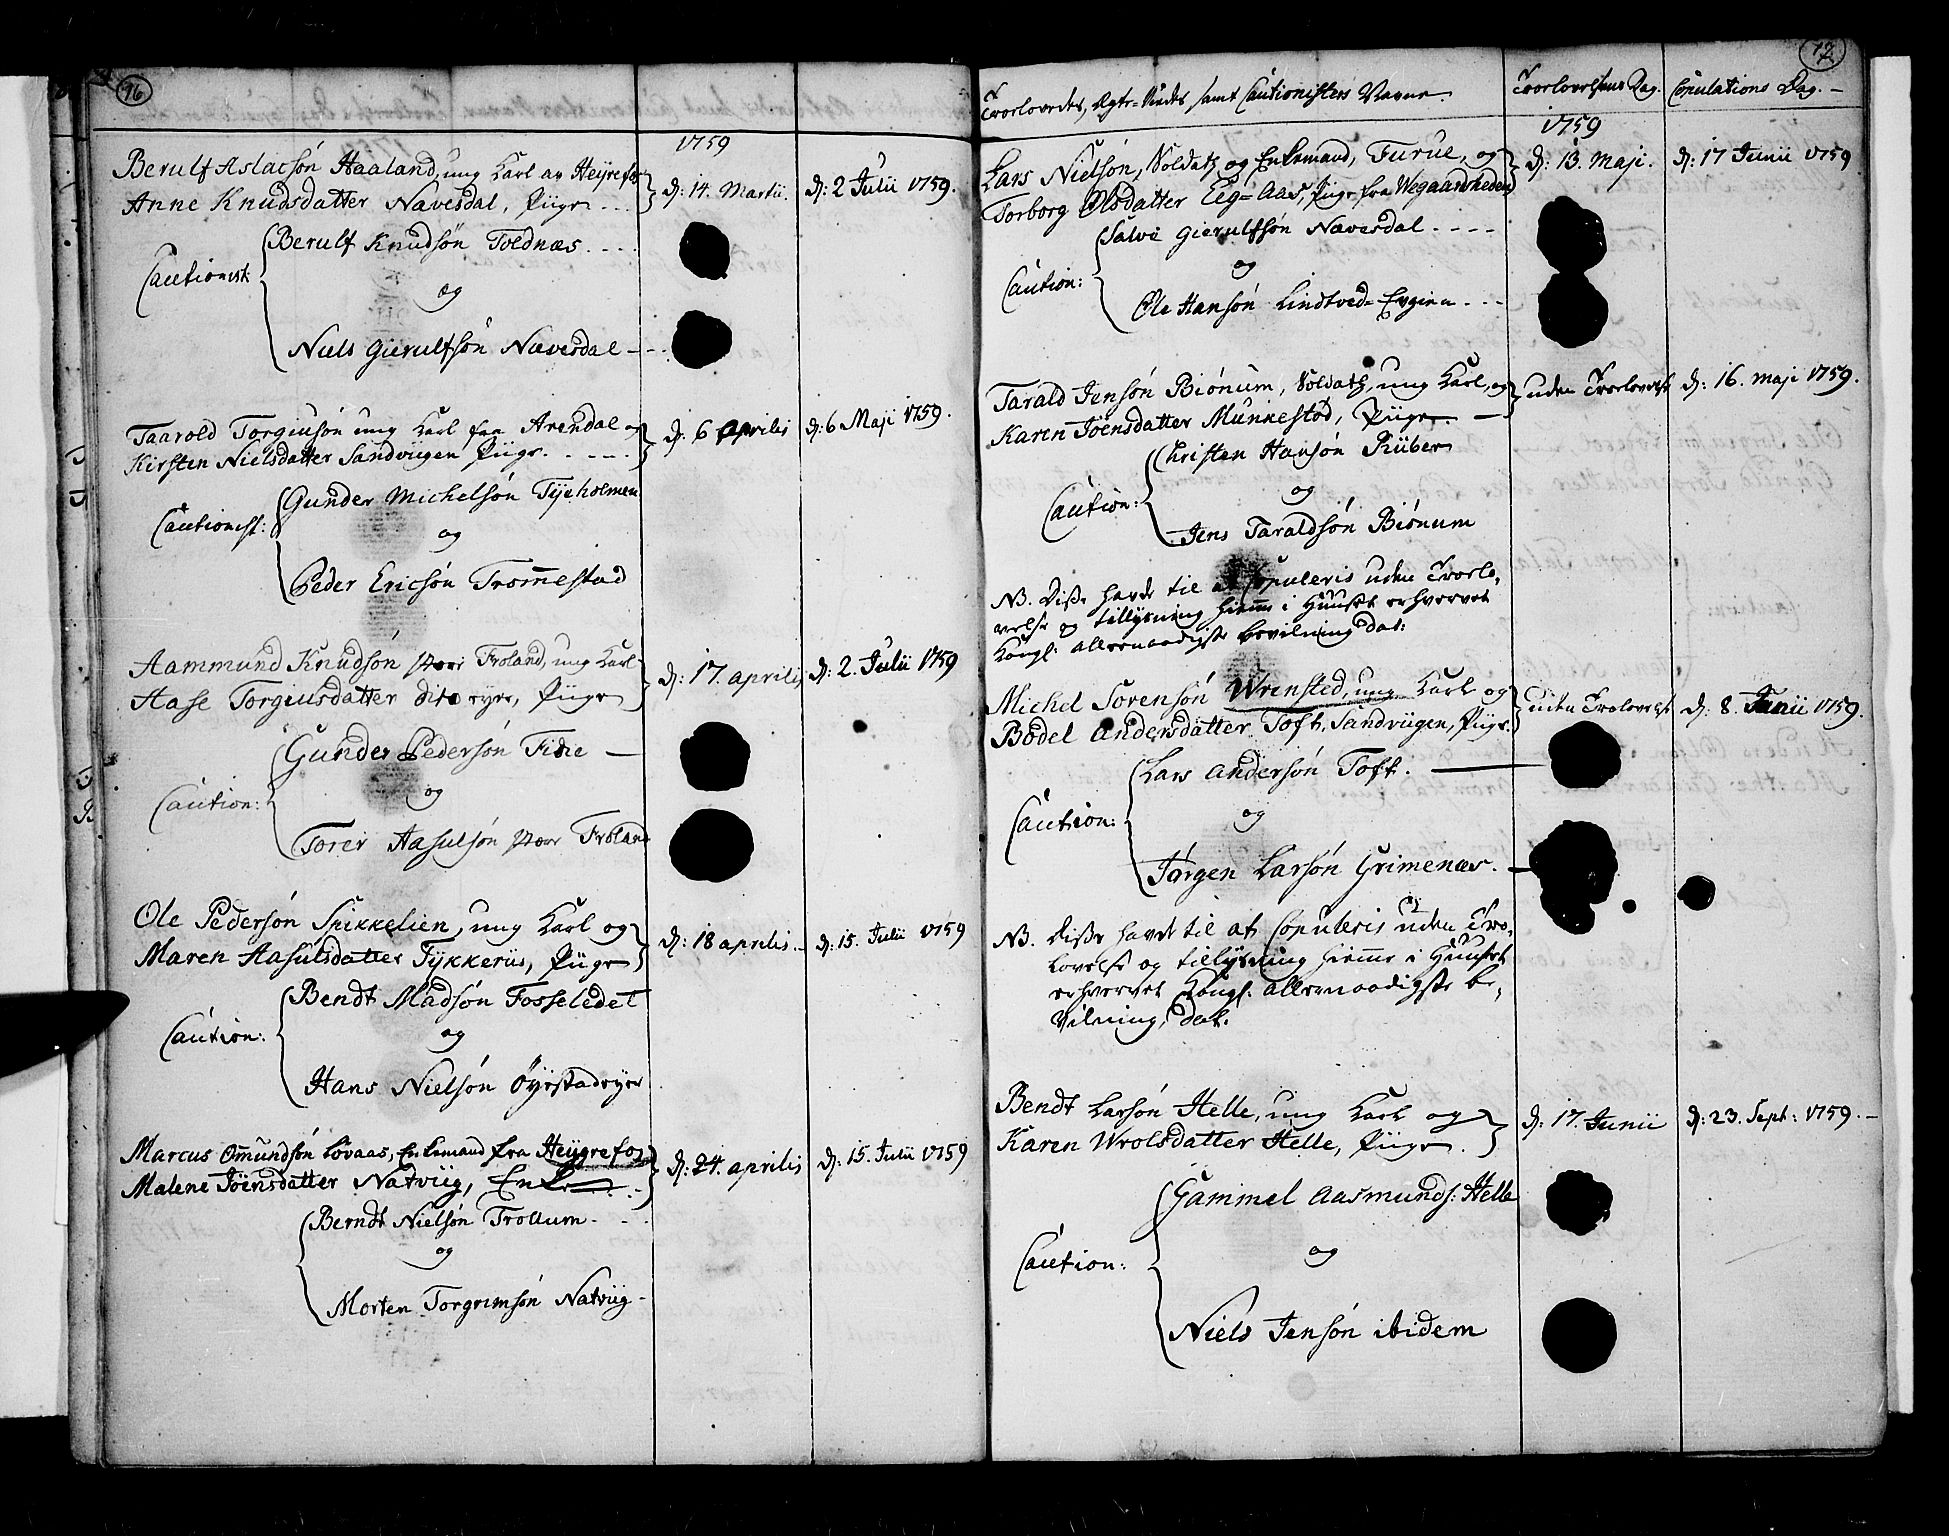 16
1759
Berulf Aslacsøn Haaland, ung Karl av Heyrefos
Anne Knudsdatter Navesdal, Piige
d: 14. Martii. d: 2 Julii 1759.
Cautionist:
Berulf Knudsøn Toldnæs
og
Niels Gierulfsøn Navesdal
Taarold Torgiusøn ung Karl fra Arendal og
Kirsten Nielsdatter Sandviigen Piige.
d: 6 Aprilis d: 6 Maji 1759.
Cautionist:
Gunder Michelsøn Tyeholmen
og
Peder Ericsøn Trom̄estad
Aammund Knudsøn Froland, ung Karl
Aase Torgiusdatter dito eyre, Piige
d: 17. aprilis d: 2. Julii 1759
Caution:
Gunder Pedersøn Fidie
og
Torer Aasulsøn Froland
Ole Pedersøn Spikkelien, ung Karl og
Maren Aasulsdatter Tykkeriis, Piige
d: 18 aprilis d: 15. Julii 1759
Caution:
Bendt Madsøn Fosseledet
og
Hans Nielsøn Øyestadeyer
Marcus Om̄undsøn Løvaas, Enkemand fra Heygrefos
Malene Joensdatter Natviig, Enke
d: 24. aprilis d: 15. Julii 1759
Berndt Nielsøn Trollum
og
Morten Torgrimsøn Natviig
17
Troelovedes, Egte-Viedes samt Cautionisters Navne. Troelovelsens Dag. Copulations Dag.
1759
Lars Nielsøn, Soldatz og Enkemand, Furue, og
Torborg Olsdatter Eeg=Aas, Piige fra Wegaardsheden
d: 13. Maji. d: 17 Junii 1759
Caution:
Salve Gierulfsøn Nævesdal
og
Ole Hansøn Lindtved=Eygien
Tarald Jensøn Biønum, Soldatz, ung Karl, og
Karen Joensdatter Munkestød, Piige
uden Troelovelse d: 16. Maji 1759.
Caution:
Christen Hansøn Rüber
og
Jens Taraldsøn Biønum
NB. Disse havde til at Copuleris uden Troelo,
velse og tillysning hiem̄e i Huuset erhvervet
Kongl: allernaadigste bevilning dat:
Michel Sørensøn Wrensted, ung Karl og
Bodel Andersdatter Toft, Sandviigen, Piige.
uden Trolovelse d: 8. Junii 1759.
Caution:
Lars Andersøn Toft.
og
Jørgen Larsøn Grimenæs.
NB. Disse havde til at Copuleris uden Tro,
lovelse og tillysning hiem̄e i Huuset
erhvervet Kongl: allernaadigste be,
vilning, dat.
Bendt Larsøn Helle, ung Karl og
Karen Wrolsdatter Helle, Piige
d: 17. Junii d: 23. Sept: 1759.
Caution:
Gammel Aasmunds: Helle
og
Niels Jensøn ibidem